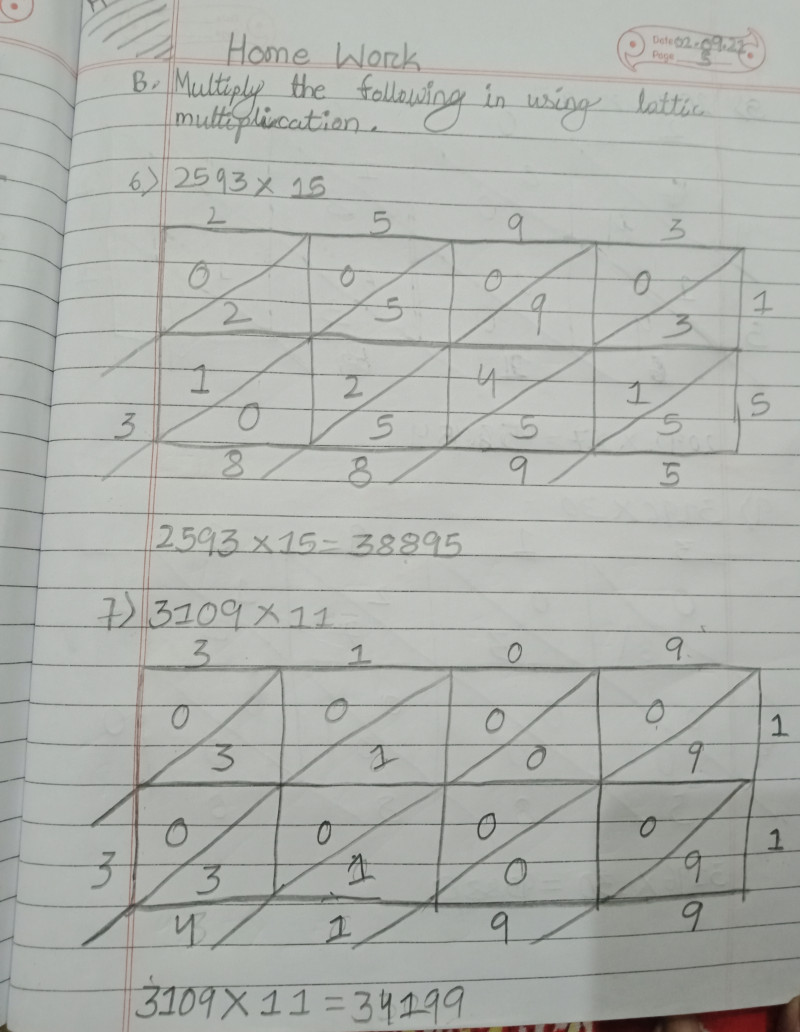 Home Work
Date 02.09.22
Page 3
B. Multiply the following in using lattic
multiplication.
6.) 2593 × 15
2 5 9 3
0 0 0 0
2 5 9 3 1
1 2 4 1
3 0 5 5 5 5
8 8 9 5
2593 × 15 = 38895
7) 3109 × 11
3 1 0 9
0 0 0 0
3 1 0 9 1
0 0 0 0 1
3 3 1 0 9
4 1 9 9
3109 × 11 = 34199